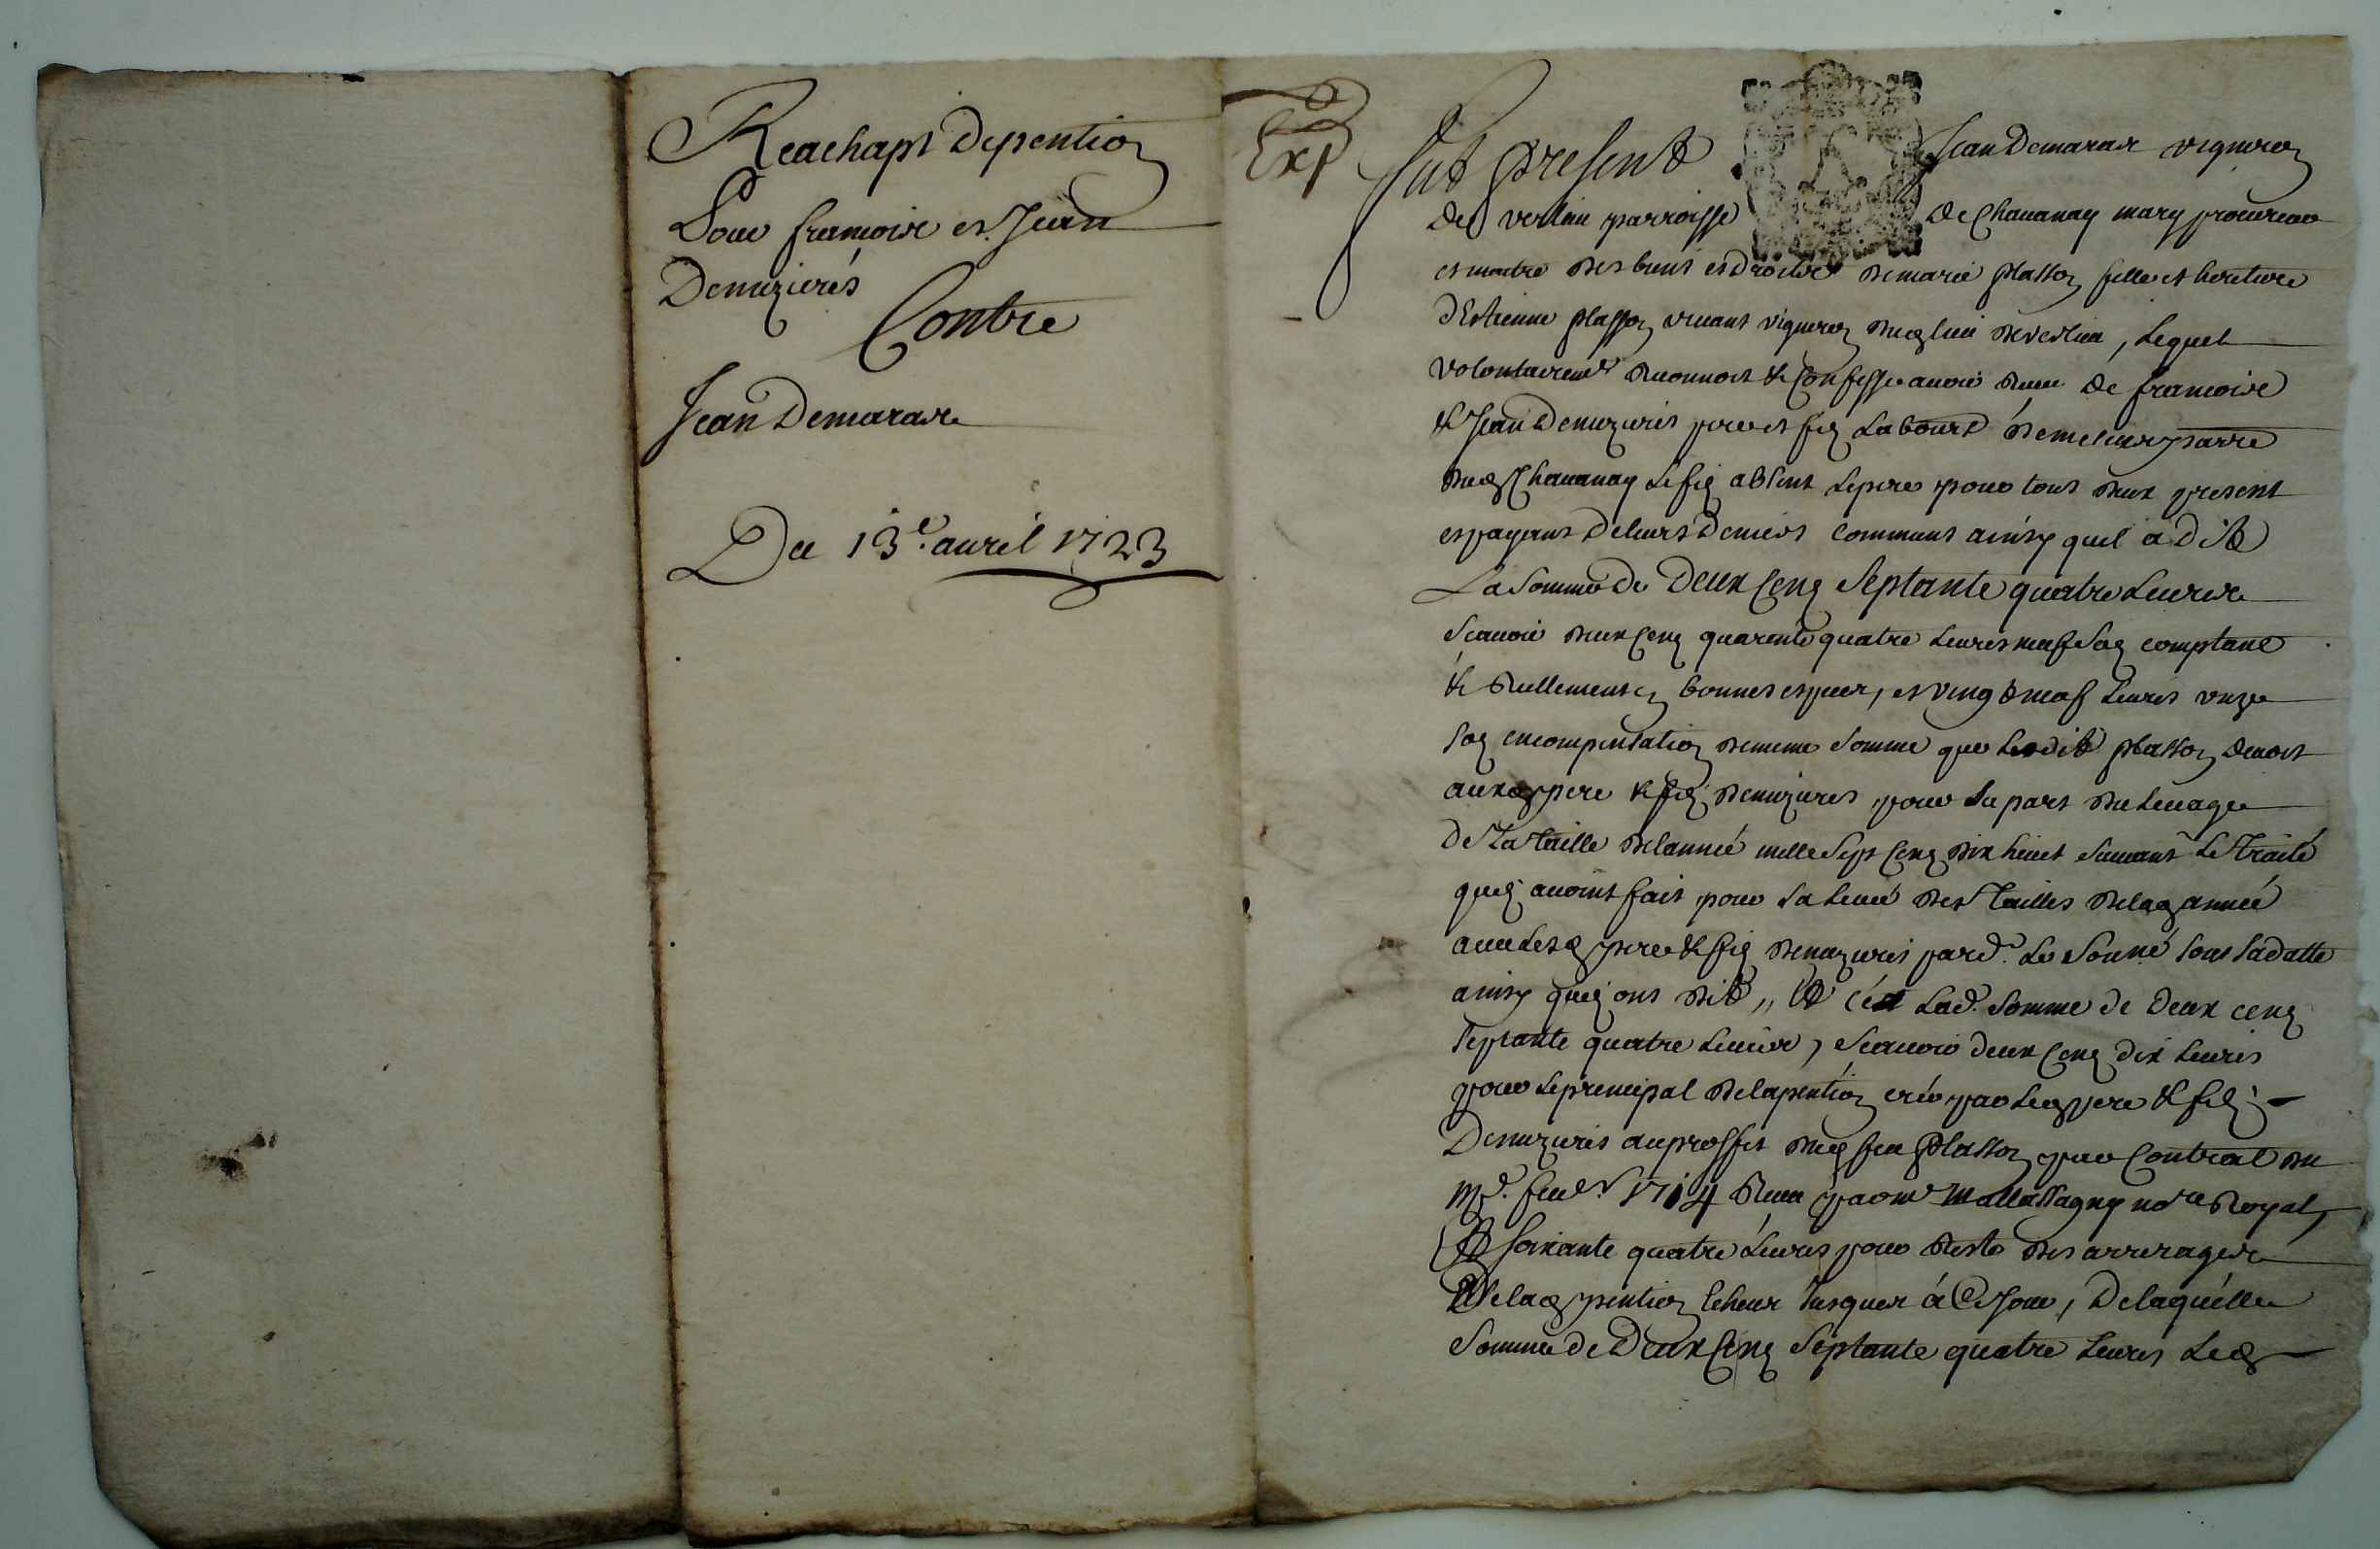 Reachapt de pention
Pour francois et Jean
Demuzierés
Contre
Jean Demaras
Du 13e. auril 1723
Exp
Fut present Jean Demaras vigneron
de verlieu parroisse de Chauanay mary procureur
et maitre des biens et droits de marie plasson fille et heritiere
d'Estienne plasson viuant vigneron dud lieu de verlieu, Lequel
volontairemt reconnoit & Confesse auoir receu de francois
& Jean Demuzieres pere et fiq Labourd parre
dud Chauanay le fiq absent le pere pour tous deux present
et payant de leurs deniers communs ainsy quil a dit
La somme de Deux Cenq Septante quatre Liures
scauoir deux Cenq quarente quatre Liures neuf soq comptant
& reellement en bonnes especes, et vingt neuf Liures unze
soq en compensation de meme somme que ledit plasson deuoit
auxd pere & fiq Demuzieres pour sa part du leuage
de La taille de lannée mille sept Cenq dix huict suiuant Le Traité
quiq auoint fait pour la leueé des Tailles de lad année
auec Lesd pere & fiq Demuzieres pard. Le Soune sous sa datte
ainsy quiq ont dit, & c'est Lad. somme de deux cenq
septante quatre Liures, scauoir deux Cenq dix Liures
pour le principal de la pention creé par Lesd pere & fiq
Demuzieres au proffit dud feu Plasson par Contrat du
feur. 1714 Receu par me Mallassagny nore Royal,
& soixante quatre Liures pour reste des arrerages
De lad pention jusques á Ce Jour, De laquelle
somme de Deux Cenq Septante quatre Liures Led